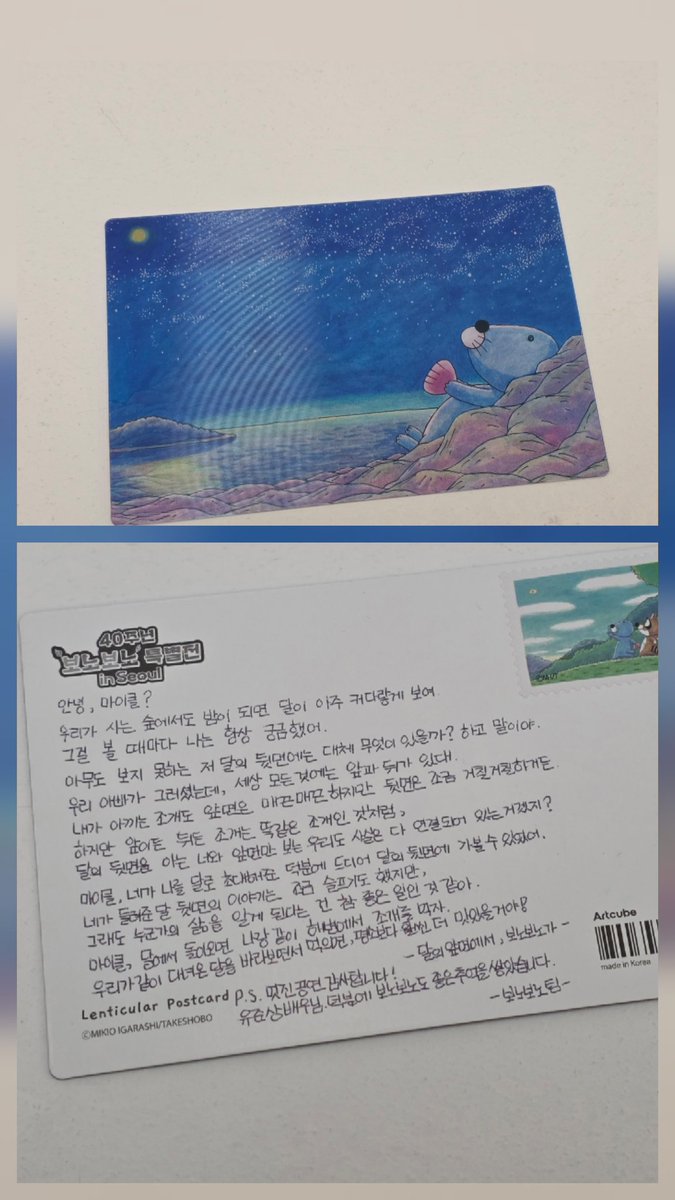 40주년
보노보노 특별전
in Seoul
안녕, 마이클?
우리가 사는 숲에서도 밤이 되면 달이 아주 커다랗게 보여.
그걸 볼 때마다 나는 항상 궁금했어.
아무도 보지 못하는 저 달의 뒷면에는 대체 무엇이 있을까? 하고 말이야.
우리 아빠가 그러셨는데, 세상 모든 것에는 앞과 뒤가 있대.
내가 아끼는 조개도 앞면은 매끈매끈하지만 뒷면은 조금 거칠거칠하거든.
하지만 앞이든 뒤든 조개는 똑같은 조개인 것처럼,
달의 뒷면을 아는 너와 앞면만 보는 우리도 사실은 다 연결되어 있는거겠지?
마이클, 네가 나를 달로 초대해준 덕분에 드디어 달의 뒷면에 가볼 수 있었어.
네가 들려준 달 뒷면의 이야기는 조금 슬프기도 했지만,
그래도 누군가의 삶을 알게 된다는 건 참 좋은 일인 것 같아.
마이클, 달에서 돌아오면 나랑 같이 해변에서 조개를 먹자.
우리가 같이 다녀온 달을 바라보면서 먹으면, 평소보다 훨씬 더 맛있을거야!
-달의 앞면에서, 보노보노가-
P.S. 멋진 공연 감사합니다!
유준상배우님 덕분에 보노보노도 좋은 추억을 쌓았습니다.
-보노보노팀-
Lenticular Postcard
©MIKIO IGARASHI/TAKESHOBO
Artcube
made in Korea